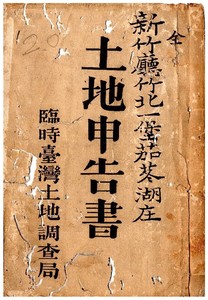 全
新竹廳竹北一堡茄苳湖庄
土地申告書
臨時臺灣土地調查局